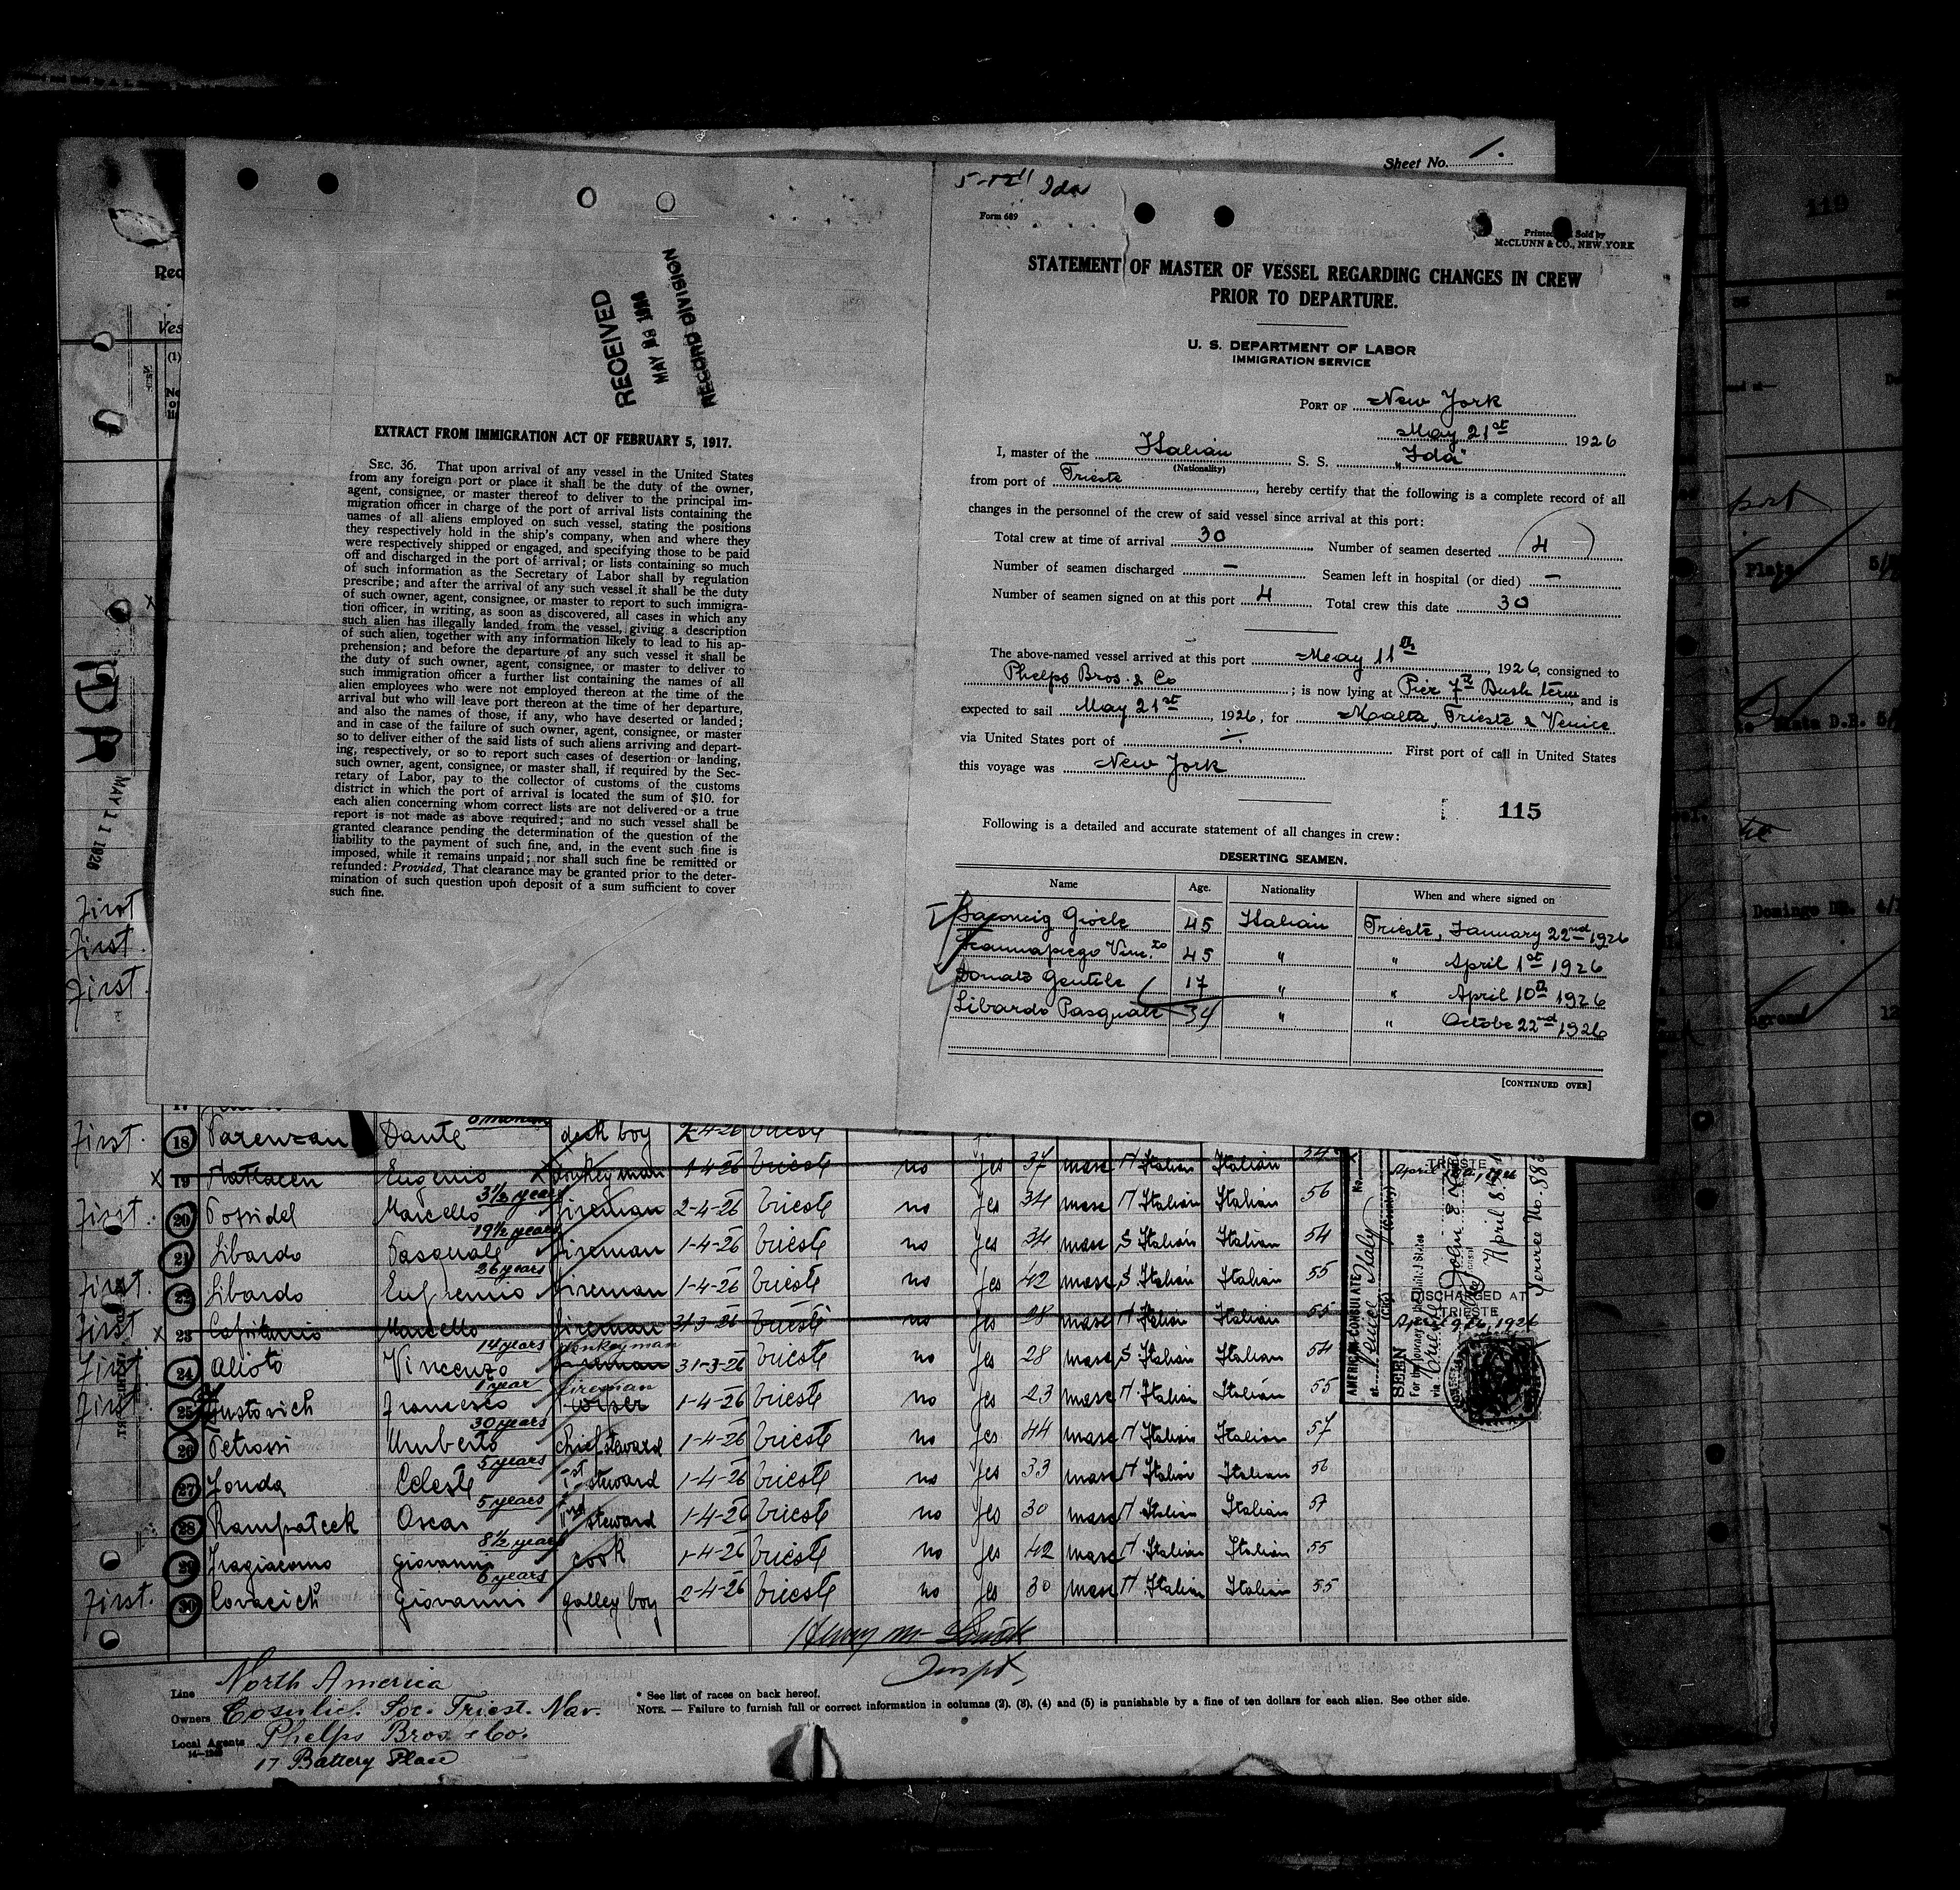 Sheet No. 1.
5-12" Ida
Form 689
Printed Sold by
McCLUNN & CO., NEW YORK
STATEMENT OF MASTER OF VESSEL REGARDING CHANGES IN CREW
PRIOR TO DEPARTURE.
U. S. DEPARTMENT OF LABOR
IMMIGRATION SERVICE
PORT OF New York
May 21st 1926
I, master of the Italian S. S. "Ida"
(Nationality)
from port of Trieste, hereby certify that the following is a complete record of all
changes in the personnel of the crew of said vessel since arrival at this port:
Total crew at time of arrival 30 Number of seamen deserted 4
Number of seamen discharged — Seamen left in hospital (or died) —
Number of seamen signed on at this port 4 Total crew this date 30
The above-named vessel arrived at this port May 11th, 1926, consigned to
Phelps Bros. & Co; is now lying at Pier 7th Bush term, and is
expected to sail May 21st, 1926, for Malta, Trieste & Venice
via United States port of —. First port of call in United States
this voyage was New York
115
Following is a detailed and accurate statement of all changes in crew:
DESERTING SEAMEN.
Name Age. Nationality When and where signed on
Gioele 45 Italian Trieste, January 22nd 1926
45 " " April 1st 1926
Donato Gentile 17 " " April 10th 1926
Libardo Pasquale 34 " " Octobe 22nd 1926
[CONTINUED OVER]
RECEIVED
MAY 1926
RECORD DIVISION
EXTRACT FROM IMMIGRATION ACT OF FEBRUARY 5, 1917.
SEC. 36. That upon arrival of any vessel in the United States
from any foreign port or place it shall be the duty of the owner,
agent, consignee, or master thereof to deliver to the principal im-
migration officer in charge of the port of arrival lists containing the
names of all aliens employed on such vessel, stating the positions
they respectively hold in the ship's company, when and where they
were respectively shipped or engaged, and specifying those to be paid
off and discharged in the port of arrival; or lists containing so much
of such information as the Secretary of Labor shall by regulation
prescribe; and after the arrival of any such vessel it shall be the duty
of such owner, agent, consignee, or master to report to such immigra-
tion officer, in writing, as soon as discovered, all cases in which any
such alien has illegally landed from the vessel, giving a description
of such alien, together with any information likely to lead to his ap-
prehension; and before the departure of any such vessel it shall be
the duty of such owner, agent, consignee, or master to deliver to
such immigration officer a further list containing the names of all
alien employees who were not employed thereon at the time of the
arrival but who will leave port thereon at the time of her departure,
and also the names of those, if any, who have deserted or landed;
and in case of the failure of such owner, agent, consignee, or master
so to deliver either of the said lists of such aliens arriving and depart-
ing, respectively, or so to report such cases of desertion or landing,
such owner, agent, consignee, or master shall, if required by the Sec-
retary of Labor, pay to the collector of customs of the customs
district in which the port of arrival is located the sum of $10. for
each alien concerning whom correct lists are not delivered or a true
report is not made as above required; and no such vessel shall be
granted clearance pending the determination of the question of the
liability to the payment of such fine, and, in the event such fine is
imposed, while it remains unpaid; nor shall such fine be remitted or
refunded: Provided, That clearance may be granted prior to the deter-
mination of such question upon deposit of a sum sufficient to cover
such fine.
MAY 11 1926
First
First.
First.
First. 18 Parenzan Dante deck boy 2-4-26 Trieste
x 19 Eugenio donkeyman 1-4-26 Trieste no yes 37 masc Italian Italian 54
First. 20 Possidel Marcello 3½ years fireman 2-4-26 Trieste no yes 34 masc Italian Italian 56
21 Libardo Pasquale 19½ years fireman 1-4-26 Trieste no yes 34 masc S Italian Italian 54
First 22 Libardo Eufremio 26 years fireman 1-4-26 Trieste no yes 42 masc S Italian Italian 55
First x 23 Capitanio Marcello fireman 31-3-26 Trieste no yes 28 masc Italian Italian 55
First 24 Alioto Vincenzo 14 years donkeyman fireman 31-3-26 Trieste no yes 28 masc S Italian Italian 54
First 25 Francesco 1 year fireman 1-4-26 Trieste no yes 23 masc Italian Italian 55
26 Petrossi Umberto 30 years chief steward 1-4-26 Trieste no yes 44 masc Italian Italian 57
27 Zonda Celeste 5 years 1st steward 1-4-26 Trieste no yes 33 masc Italian Italian 56
28 Rampateck Oscar 5 years 2nd steward 1-4-26 Trieste no yes 30 masc Italian Italian 57
29 Fragiacomo Giovanni 8½ years cook 1-4-26 Trieste no yes 42 masc Italian Italian 55
First. 30 Covacich Giovanni 6 years galley boy 2-4-26 Trieste no yes 30 masc Italian Italian 55
TRIESTE
AMERICAN CONSULATE
at Venice Italy
SEEN
For the journey to the United States
April 8.
Service No. 88
DISCHARGED AT
TRIESTE
Line North America
Owners Cosulich Soc. Triest. Nav.
Local Agents Phelps Bros. & Co.
17 Battery Place
* See list of races on back hereof.
NOTE. — Failure to furnish full or correct information in columns (2), (3), (4) and (5) is punishable by a fine of ten dollars for each alien. See other side.
119